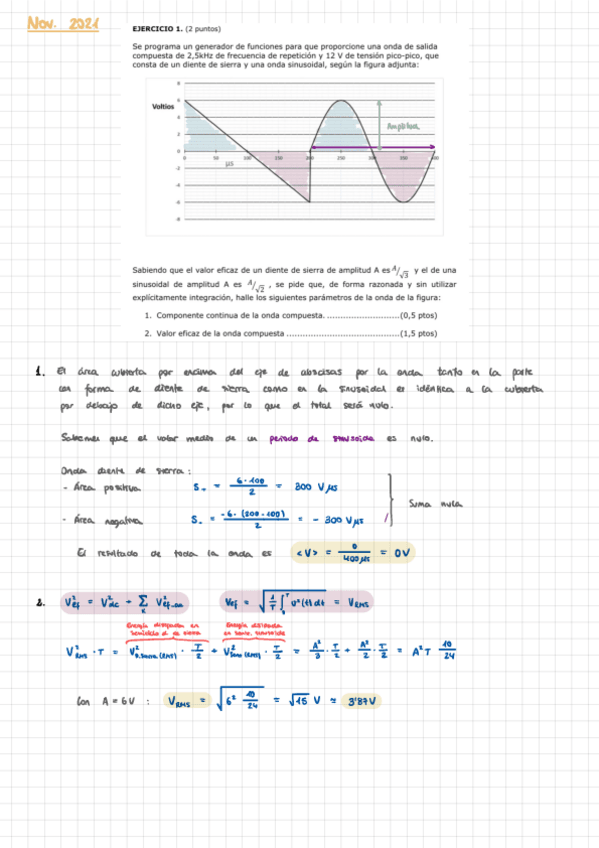 Nov. 2021
EJERCICIO 1. (2 puntos)
Se programa un generador de funciones para que proporcione una onda de salida
compuesta de 2,5kHz de frecuencia de repetición y 12 V de tensión pico-pico, que
consta de un diente de sierra y una onda sinusoidal, según la figura adjunta:
8
Voltios
6
4
2
0
-2
-4
-6
-8
0 50 100 150 200 250 300 350 400
µs
Amplitud
Sabiendo que el valor eficaz de un diente de sierra de amplitud A es A/√3 y el de una
sinusoidal de amplitud A es A/√2 , se pide que, de forma razonada y sin utilizar
explícitamente integración, halle los siguientes parámetros de la onda de la figura:
1. Componente continua de la onda compuesta. ...........................(0,5 ptos)
2. Valor eficaz de la onda compuesta ..........................................(1,5 ptos)
1. El área cubierta por encima del eje de abscisas por la onda tanto en la parte
con forma de diente de sierra como en la sinusoidal es idéntica a la cubierta
por debajo de dicho eje, por lo que el total será nulo.
Sabemos que el valor medio de un periodo de sinusoide es nulo.
Onda diente de sierra:
- Área positiva S₊ = 6·100/2 = 300 V µs
- Área negativa S₋ = -6·(200-100)/2 = -300 V µs
Suma nula
El resultado de toda la onda es <V> = 0/400 µs = 0V
2. V²ef = V²dc + Σ V²ef-ca Vef = √(1/T ∫₀ᵀ v²(t) dt) = VRMS
K
Energía disipada en
semiciclo d. de sierra
Energía disipada
en semic. sinusoide
V²RMS · T = V²D.Sierra (RMS) · T/2 + V²Seno (RMS) · T/2 = A²/3 · T/2 + A²/2 · T/2 = A² T 10/24
Con A = 6V : VRMS = √(6² 10/24) = √15 V ≃ 3'87V